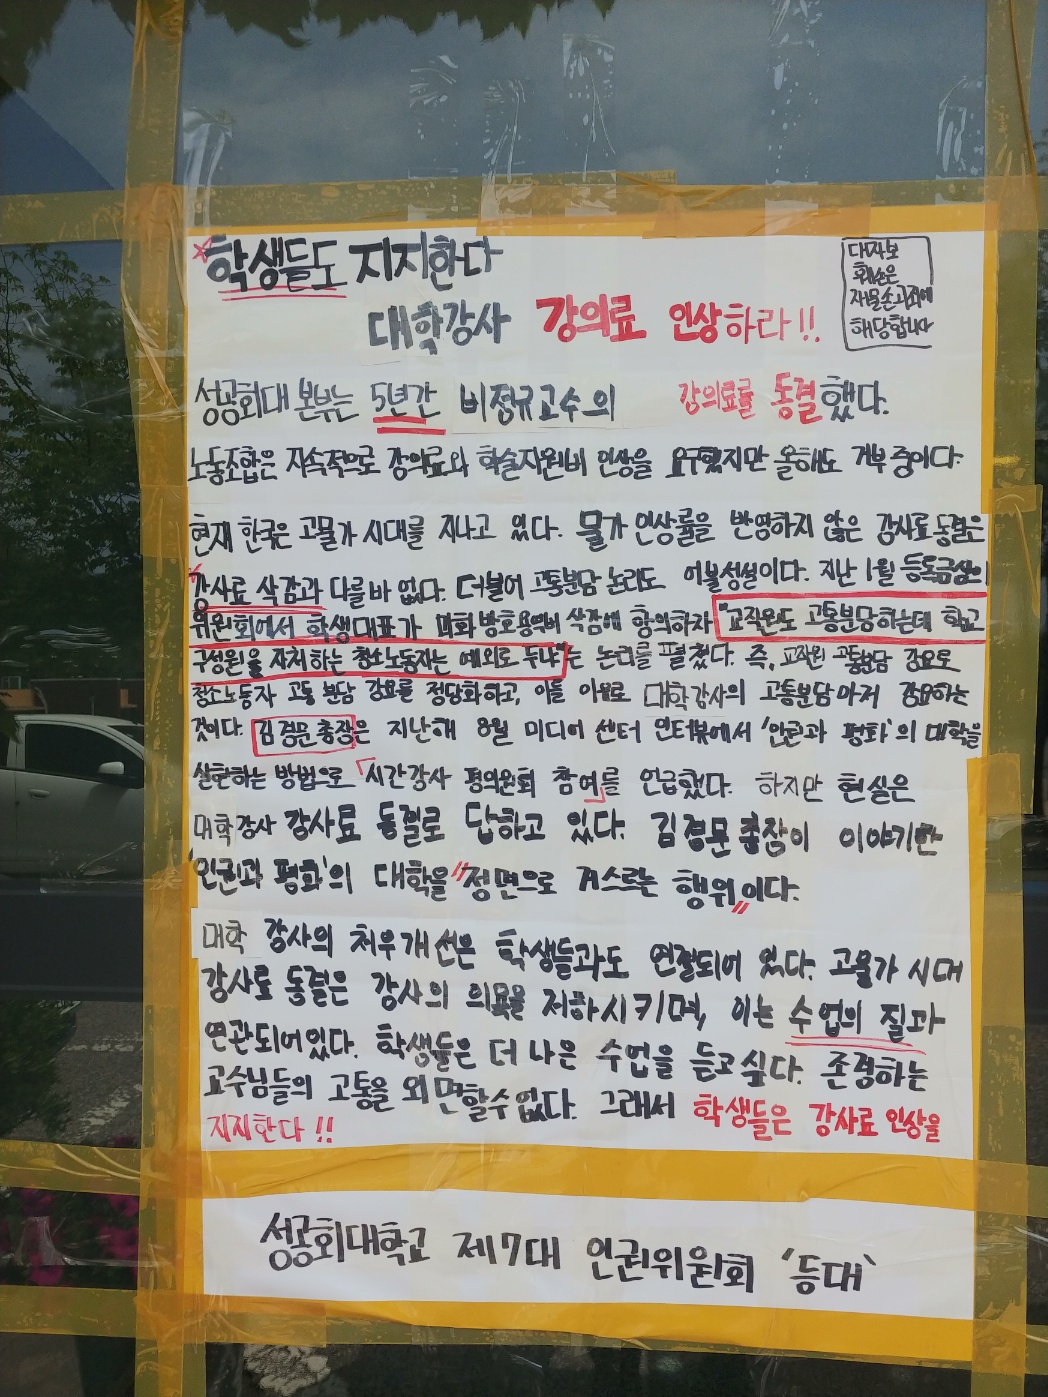 학생들도 지지한다
대자보
훼손은
재물손괴죄에
해당합니다
대학강사 강의료 인상하라!!
성공회대 본부는 5년간 비정규교수의 강의료를 동결했다.
노동조합은 지속적으로 강의료와 학술지원비 인상을 요구했지만 올해도 거부 중이다.
현재 한국은 고물가 시대를 지나고 있다. 물가 인상률을 반영하지 않은 강사료 동결은
강사료 삭감과 다를 바 없다. 더불어 고통분담 논리도 어불성설이다. 지난 1월 등록금심의
위원회에서 학생대표가 미화 방호용역비 삭감에 항의하자 "교직원도 고통분담하는데 학교
구성원을 자처하는 청소노동자는 예외로 두냐"는 논리를 펼쳤다. 즉, 교직원 고통분담 강요로
청소노동자 고통 분담 강요를 정당화하고, 이를 이유로 대학강사의 고통분담마저 강요하는
것이다. 김경문 총장은 지난해 8월 미디어 센터 인터뷰에서 '인권과 평화'의 대학을
실현하는 방법으로 「시간강사 평의원회 참여」를 언급했다. 하지만 현실은
대학강사 강사료 동결로 답하고 있다. 김경문 총장이 이야기한
'인권과 평화'의 대학을 "정면으로 거스르는 행위"이다.
대학 강사의 처우개선은 학생들과도 연결되어 있다. 고물가 시대
강사료 동결은 강사의 의욕을 저하시키며, 이는 수업의 질과
연관되어있다. 학생들은 더 나은 수업을 듣고싶다. 존경하는
교수님들의 고통을 외면할수없다. 그래서 학생들은 강사료 인상을
지지한다!!
성공회대학교 제7대 인권위원회 '등대'